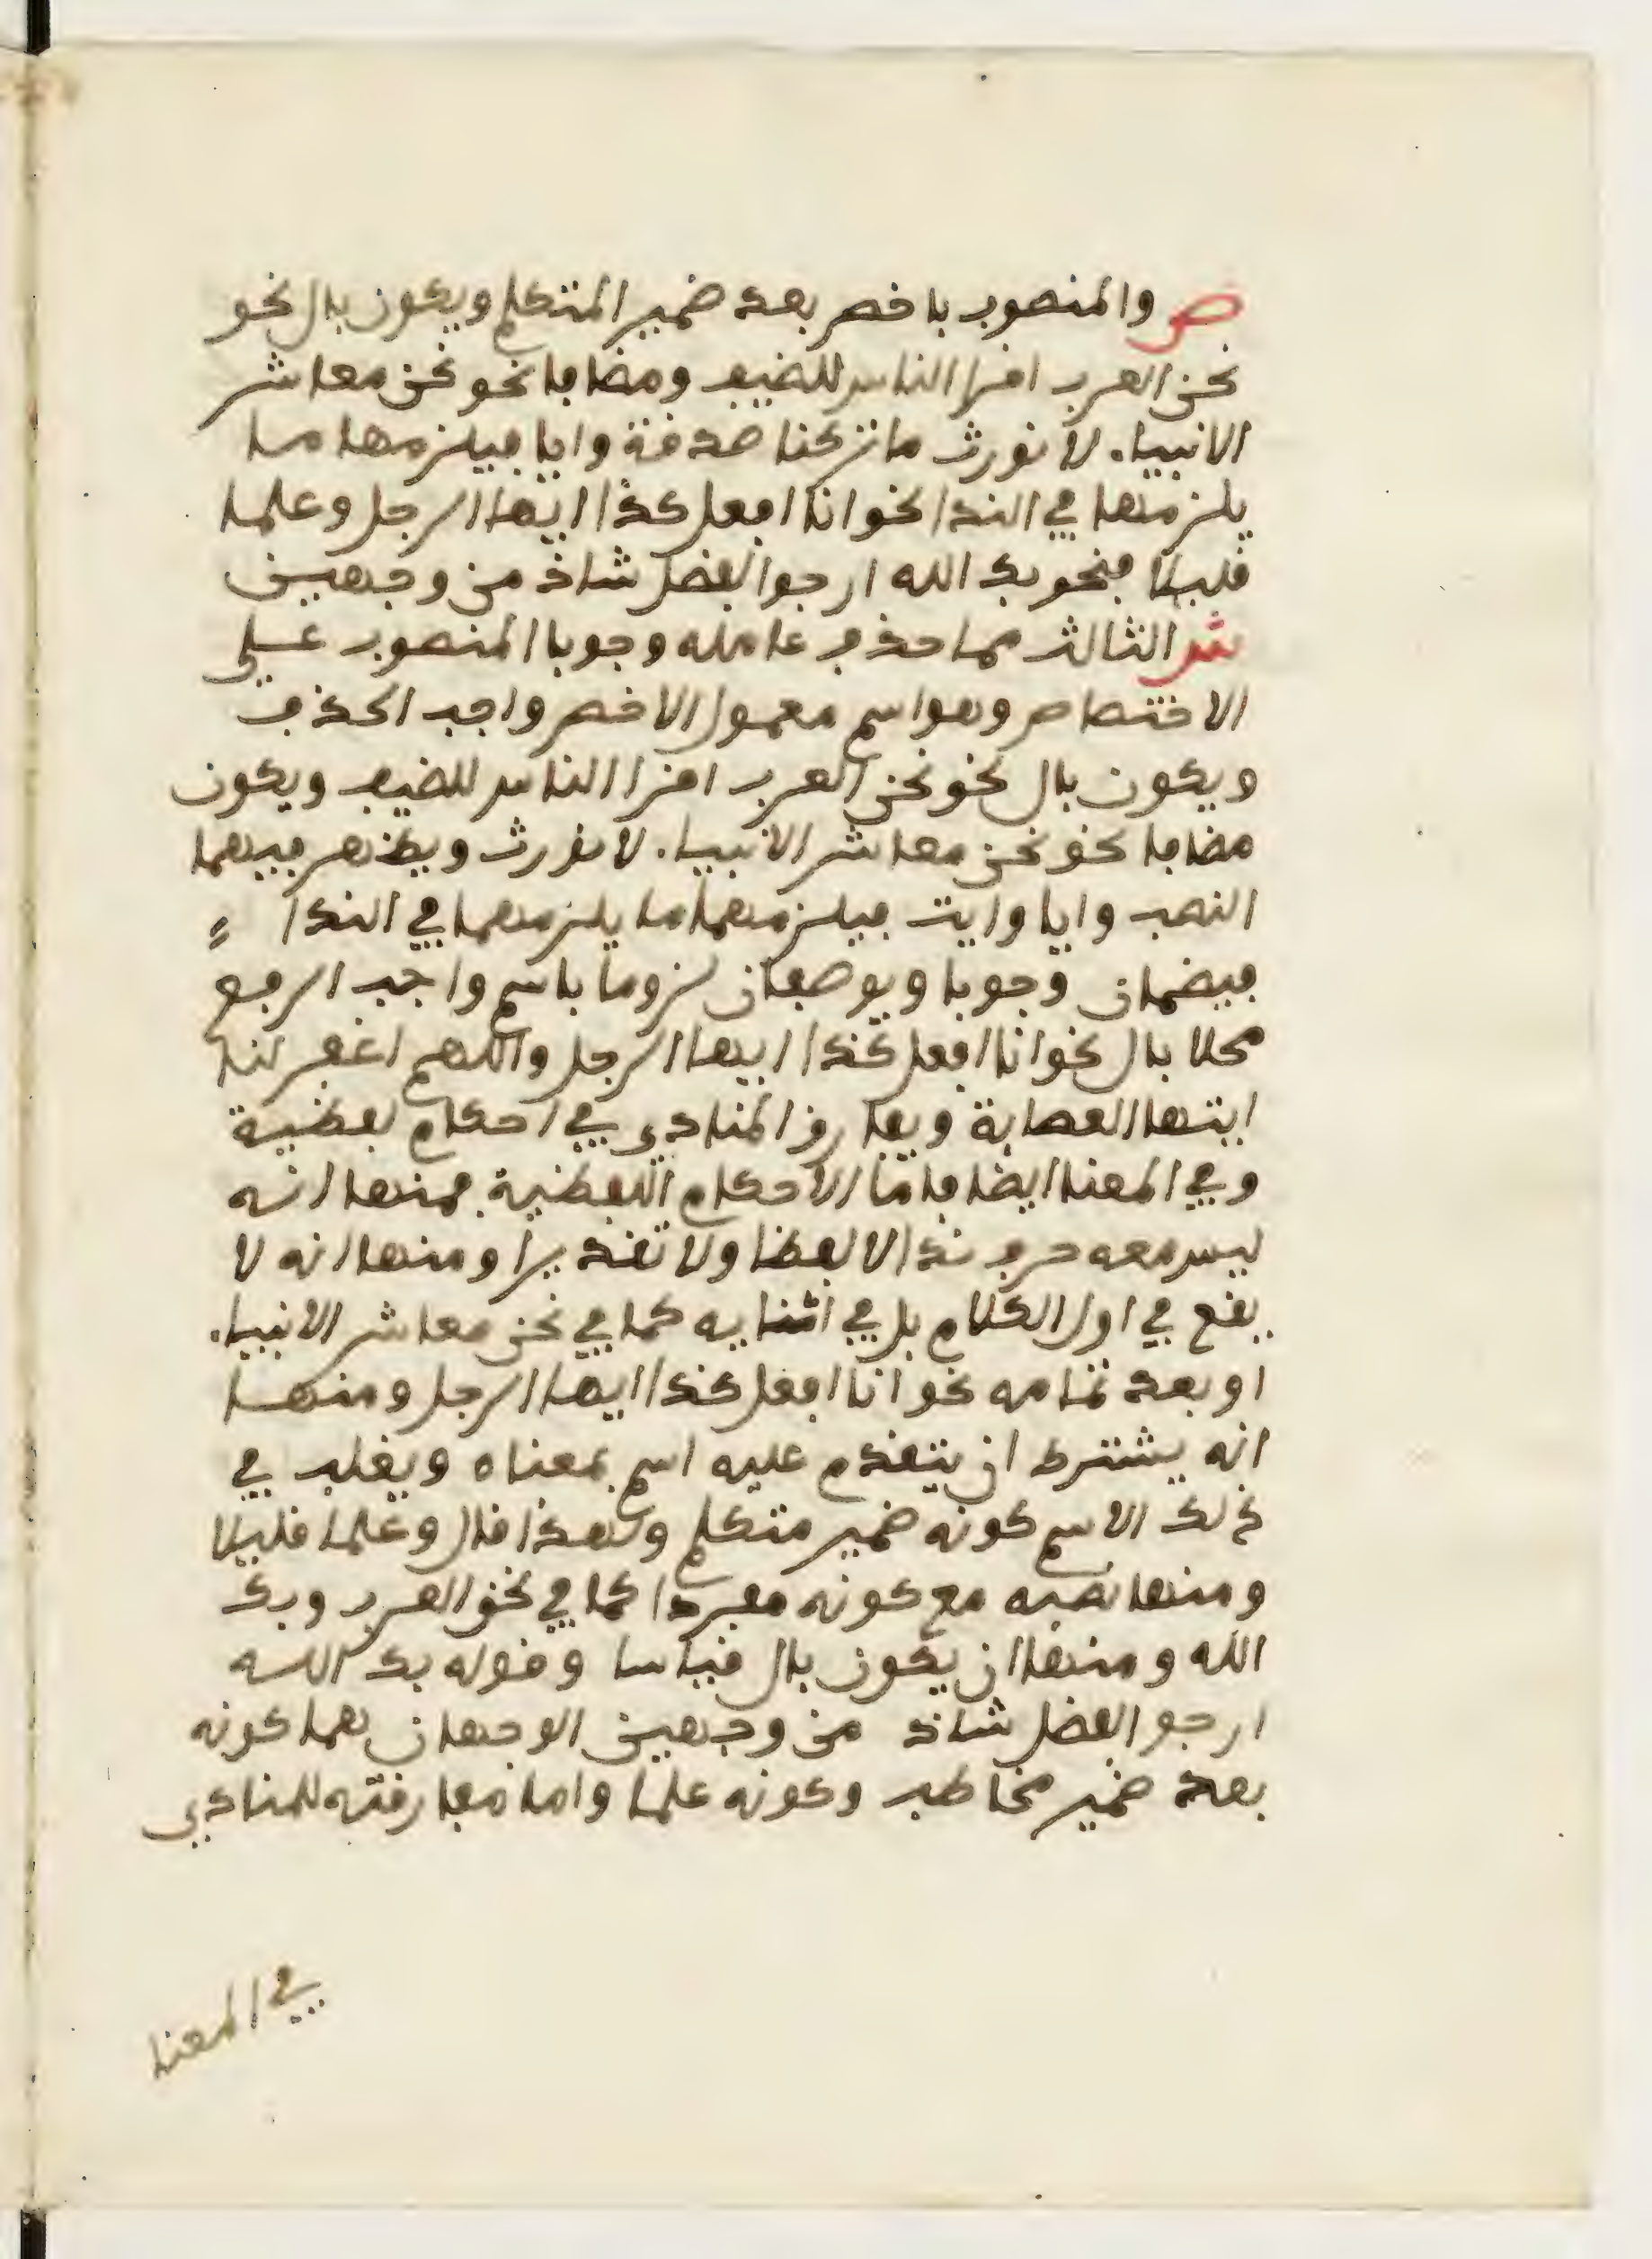 ص والمنصوب باخص بعد ضمير المتكلم ويكون بال نحو
نحن العرب اقرا الناس للضيف ومضافا نحو نحن معاشر
الانبياء لا نورث ما تركنا صدقة وايا فيلزمها ما
يلزمها في الندا نحو انا افعل كذا ايها الرجل وعلما
قليلا فنحو بك الله ارجوا الفضل شاذ من وجهين
ش الثالث مما حذف عامله وجوبا المنصوب على
الاختصاص وهو اسم معمول لاخص واجب الحذف
ويكون بال نحو نحن العرب اقرا الناس للضيف ويكون
مضافا نحو نحن معاشر الانبياء لا نورث ويظهر فيهما
النصب وايا وايت فيلزمهما ما يلزمهما في الندا
فيضمان وجوبا ويوصفان لزوما باسم واجب الرفع
محلا بال نحو انا افعل كذا ايها الرجل واللهم اغفر لنا
ايتها العصابة ويفارق المنادى في احكام لفظية
وفي المعنا ايضا فاما الاحكام اللفظية فمنها انه
ليس معه حرف ندا لا لفظا ولا تقديرا ومنها انه لا
يقع في اول الكلام بل في اثنايه كما في نحن معاشر الانبياء
او بعد تمامه نحو انا افعل كذا ايها الرجل ومنها
انه يشترط ان يتقدم عليه اسم بمعناه ويغلب في
ذلك الاسم كونه ضمير متكلم ولهذا قال وعلما قليلا
ومنها نصبه مع كونه مفردا كما في نحن العرب وبك
الله ومنها ان يكون بال قياسا وقوله بك الله
ارجو الفضل شاذ من وجهين الوجهان هما كونه
بعد ضمير مخاطب وكونه علما واما مفارقته للمنادى
في المعنا